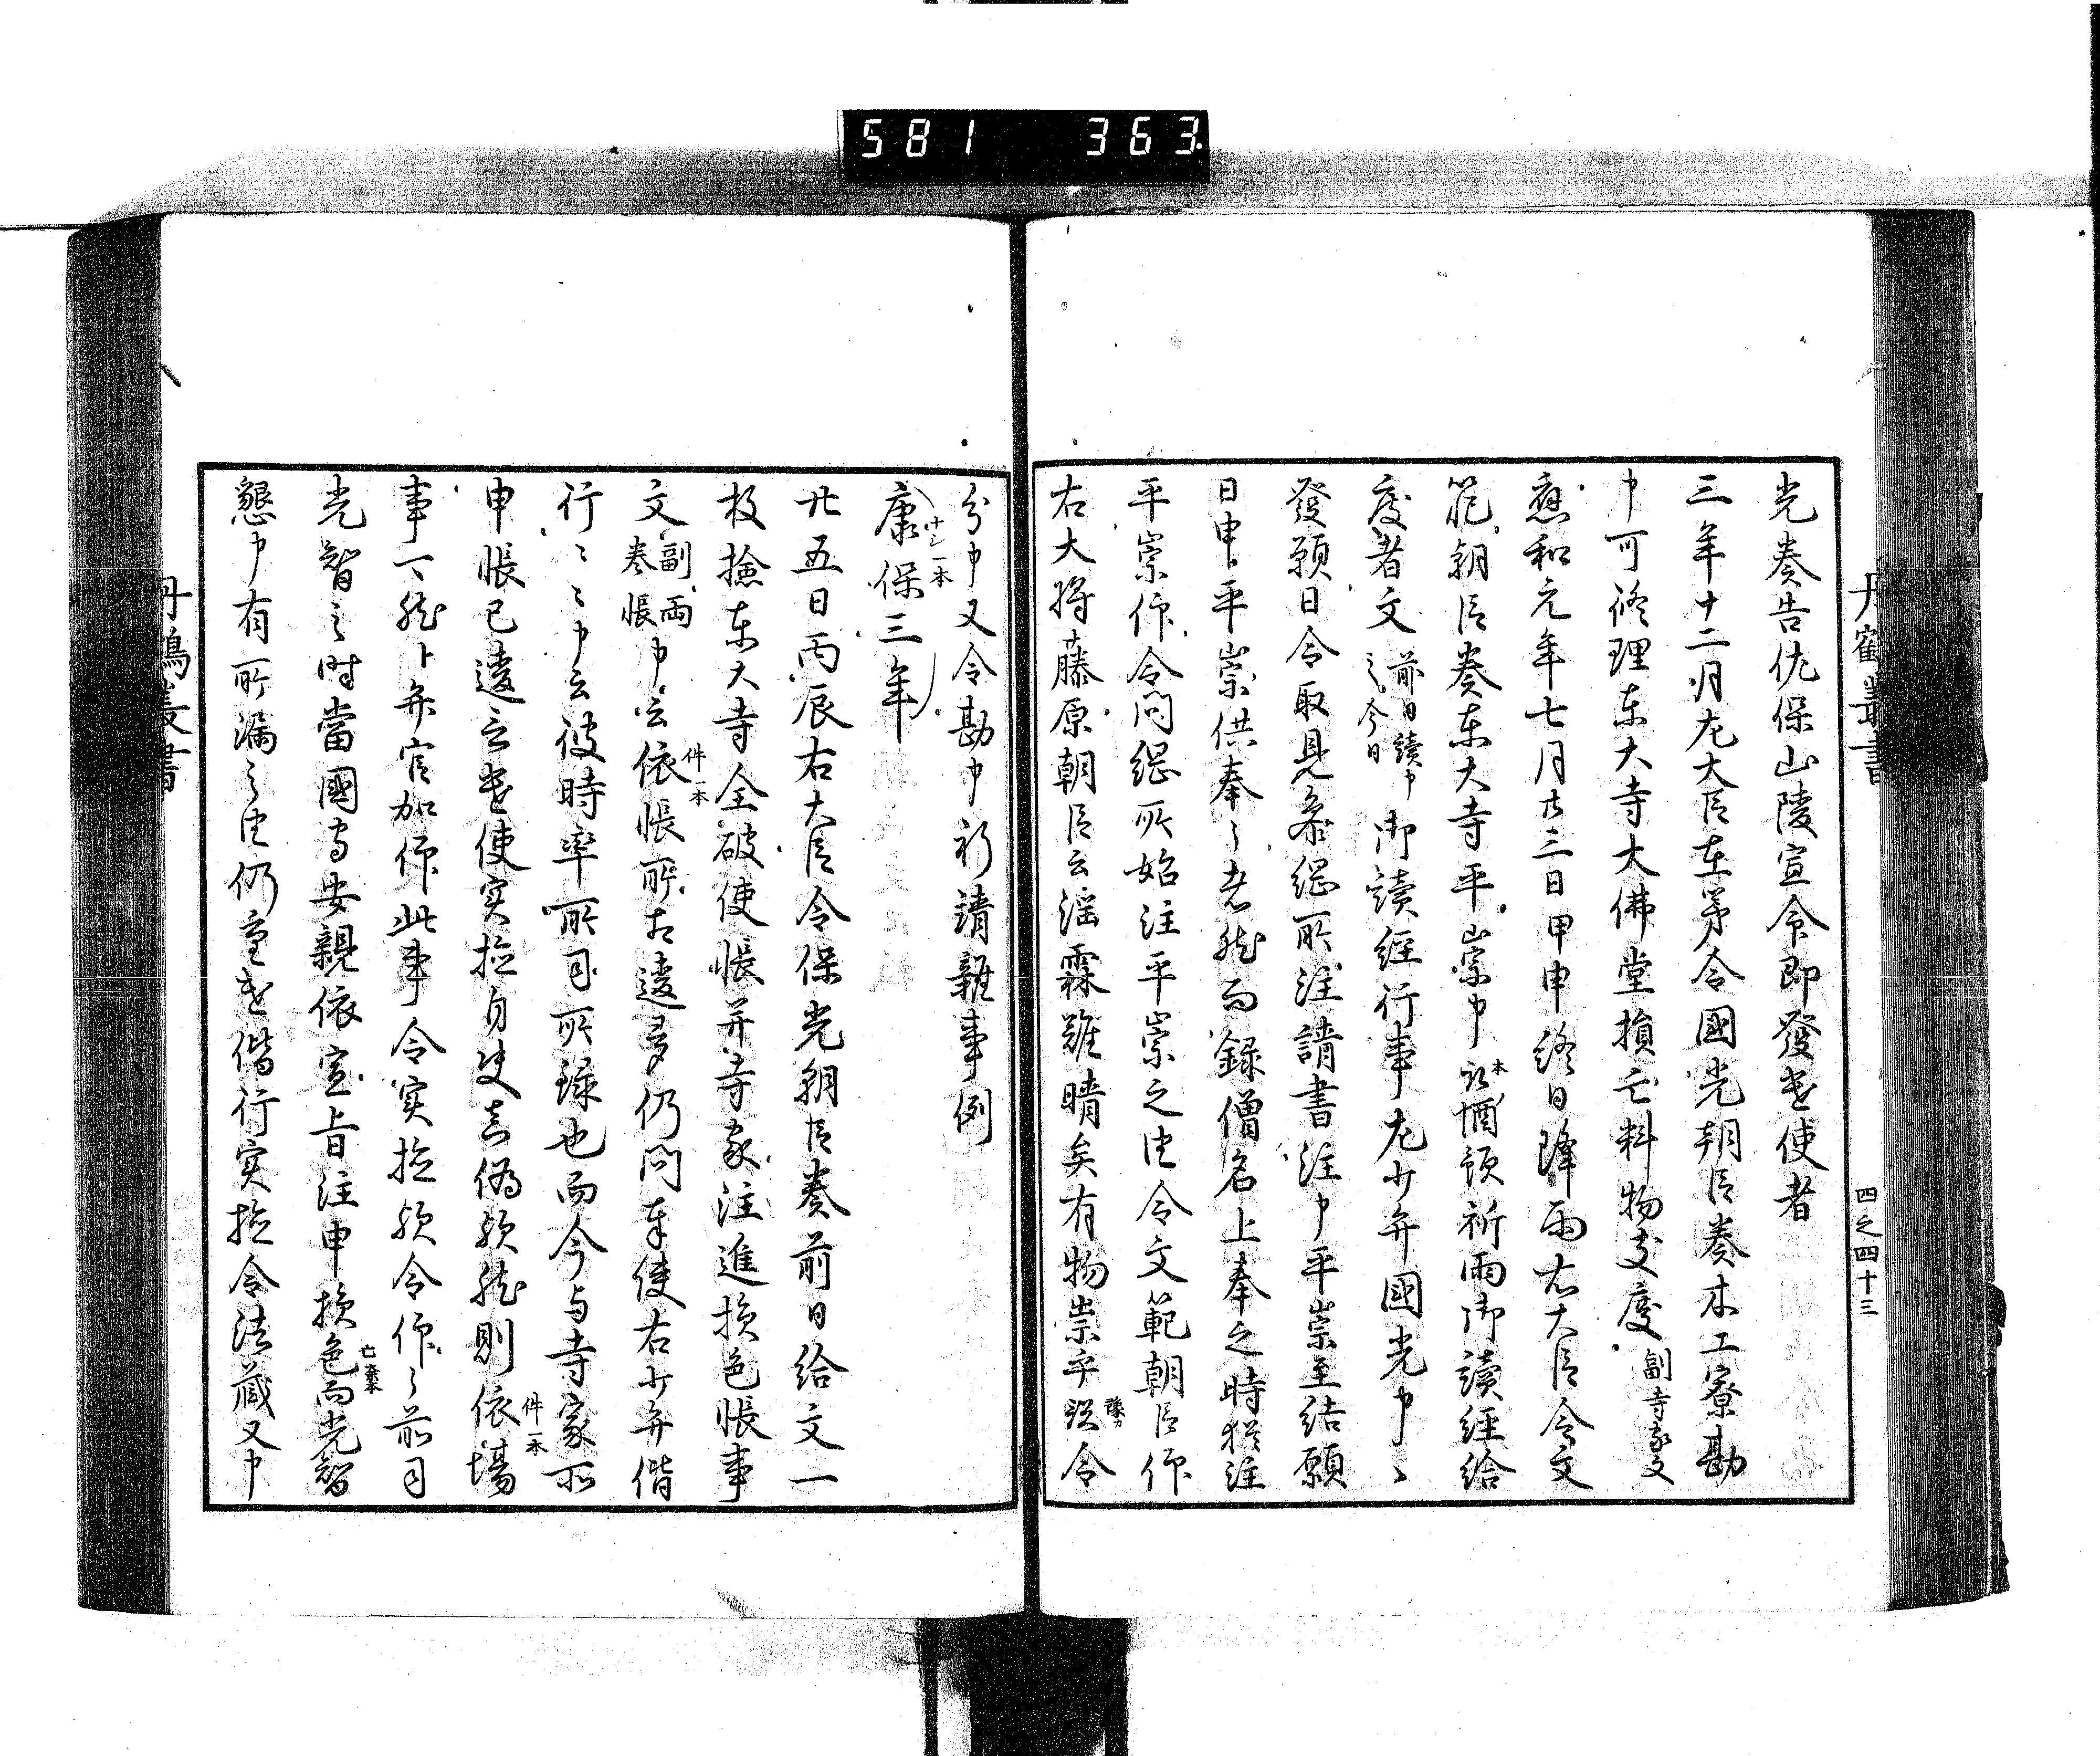 581 363
丹鶴叢書
四之四十三
光奏告佐保山陵宣命即發遣使者
三年十二月左大臣在茅令國光朝臣奏木工寮勘
申可修理東大寺大佛堂損亡料物支度副寺家文
應和元年七月廿三日甲申終日降雨右大臣令文
範朝臣奏東大寺平崇申酒頭祈雨御讀經給
度者文前日讀申之今日御讀經行事左少弁國光申〻
發願日令取見參綱所注請書注申平崇至結願
日申平崇供奉之者然而錄僧名上奉之時猶注
平崇作令問綱所始注平崇之由令文範朝臣仰
右大將藤原朝臣云淫霖難晴矣有物祟乎令
分申又令勘申祈請雜事例
康保三年
廿五日丙辰右大臣令保光朝臣奏前日給文一
枚撿東大寺全破使帳并寺家注進損色帳事
文副兩卷帳申云依帳所相違多仍問本使右少弁偕
行〻〻申云彼時率所司所錄也而今与寺家所
申帳已違之遣使実捡自决真偽欤然則依場
事下然卜弁官加作此事令実捡欤令作之前司
光智之時當國守安親依宣旨注申損色而光智
懇申有所漏之由仍重遣偕行実捡令法藏又申
丹鶴叢書